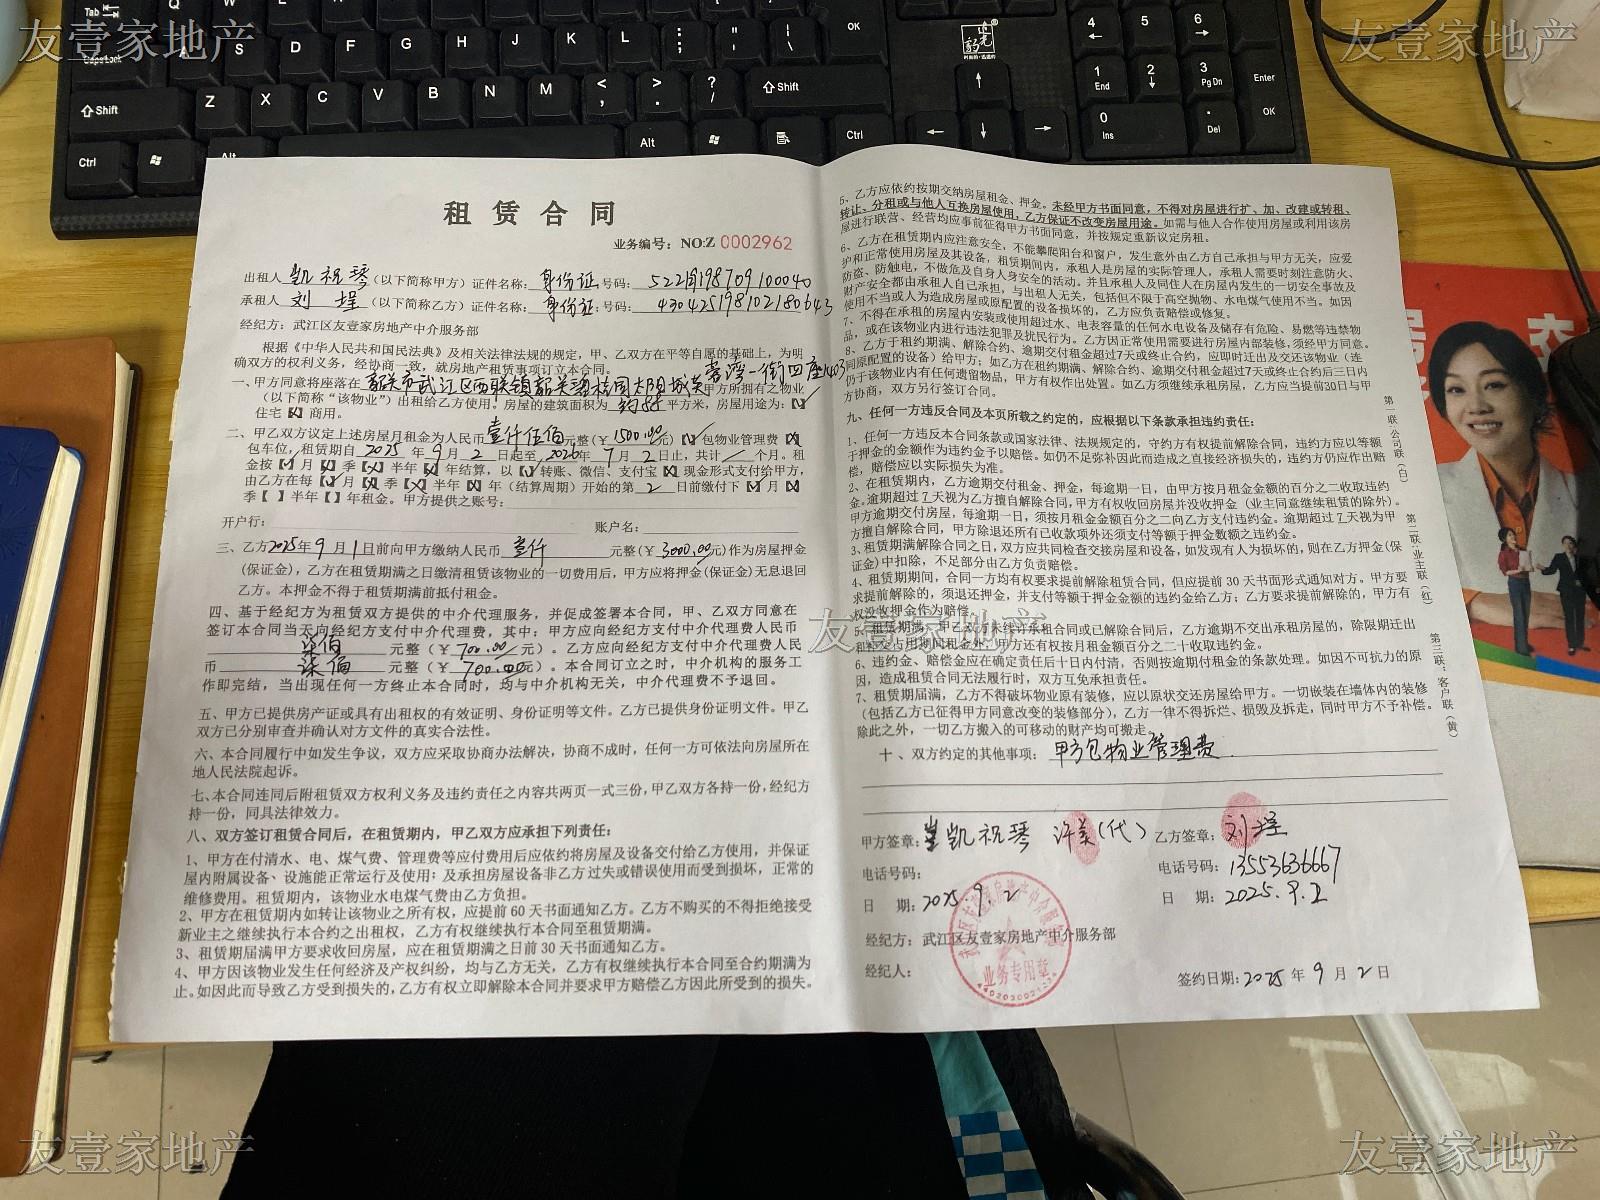 友壹家地产
友壹家地产
租赁合同
业务编号：NO:Z 0002962
出租人 凯祝琴 (以下简称甲方) 证件名称：身份证 号码：
承租人 刘 (以下简称乙方) 证件名称：身份证 号码：430425198102180643
经纪方：武江区友壹家房地产中介服务部
根据《中华人民共和国民法典》及相关法律法规的规定，甲、乙双方在平等自愿的基础上，为明
确双方的权利义务，经协商一致，就房地产租赁事项订立本合同。
一、甲方同意将座落在 韶关市武江区西联镇韶关碧桂园太阳城 湾一街四座1403 甲方所拥有之物业
(以下简称“该物业”) 出租给乙方使用。房屋的建筑面积为 约88 平方米，房屋用途为：【✓】
住宅【×】商用。
二、甲乙双方议定上述房屋月租金为人民币 壹仟伍佰 元整(￥1500.00元)【✓】包物业管理费【×】
包车位，租赁期自 2025 年 9 月 2 日起至 2026 年 9 月 2 日止，共计 个月。租
金按【✓】月【×】季【×】半年【×】年结算，以【✓】转账、微信、支付宝【×】现金形式支付给甲方，
由乙方在每【✓】月【×】季【×】半年【×】年 (结算周期) 开始的第 2 日前缴付下【✓】月【×】
季【 】半年【 】年租金。甲方提供之账号：
开户行： 账户名：
三、乙方2025年9月1日前向甲方缴纳人民币 壹仟 元整(￥3000.00元)作为房屋押金
(保证金)，乙方在租赁期满之日缴清租赁该物业的一切费用后，甲方应将押金(保证金)无息退回
乙方。本押金不得于租赁期满前抵付租金。
四、基于经纪方为租赁双方提供的中介代理服务，并促成签署本合同，甲、乙双方同意在
签订本合同当天向经纪方支付中介代理费，其中：甲方应向经纪方支付中介代理费人民币
柒佰 元整 (￥700.00 元)。乙方应向经纪方支付中介代理费人民
币 柒佰 元整 (￥700.00元)。本合同订立之时，中介机构的服务工
作即完结，当出现任何一方终止本合同时，均与中介机构无关，中介代理费不予退回。
五、甲方已提供房产证或具有出租权的有效证明、身份证明等文件。乙方已提供身份证明文件。甲乙
双方已分别审查并确认对方文件的真实合法性。
六、本合同履行中如发生争议，双方应采取协商办法解决，协商不成时，任何一方可依法向房屋所在
地人民法院起诉。
七、本合同连同后附租赁双方权利义务及违约责任之内容共两页一式三份，甲乙双方各持一份，经纪方
持一份，同具法律效力。
八、双方签订租赁合同后，在租赁期内，甲乙双方应承担下列责任：
1、甲方在付清水、电、煤气费、管理费等应付费用后应依约将房屋及设备交付给乙方使用，并保证
屋内附属设备、设施能正常运行及使用；及承担房屋设备非乙方过失或错误使用而受到损坏，正常的
维修费用。租赁期内，该物业水电煤气费由乙方负担。
2、甲方在租赁期内如转让该物业之所有权，应提前 60 天书面通知乙方。乙方不购买的不得拒绝接受
新业主之继续执行本合约之出租权，乙方有权继续执行本合同至租赁期满。
3、租赁期届满甲方要求收回房屋，应在租赁期满之日前 30 天书面通知乙方。
4、甲方因该物业发生任何经济及产权纠纷，均与乙方无关，乙方有权继续执行本合同至合约期满为
止。如因此而导致乙方受到损失的，乙方有权立即解除本合同并要求甲方赔偿乙方因此所受到的损失。
5、乙方应依约按期交纳房屋租金、押金。未经甲方书面同意，不得对房屋进行扩、加、改建或转租、
转让、分租或与他人互换房屋使用，乙方保证不改变房屋用途。如需与他人合作使用房屋或利用该房
屋进行联营、经营均应事前征得甲方书面同意，并按规定重新议定房租。
6、乙方在租赁期内应注意安全，不能攀爬阳台和窗户，发生意外由乙方自己承担与甲方无关，应爱
护和正常使用房屋及其设备，租赁期间内，承租人是房屋的实际管理人，承租人需要时刻注意防火、
防盗、防触电，不做危及自身人身安全的活动。并且承租人及同住人在房屋内发生的一切安全事故及
财产安全都由承租人自己承担，与出租人无关，包括但不限于高空抛物、水电煤气使用不当。如因
使用不当或人为造成房屋或原配置的设备损坏的，乙方应负责赔偿或修复。
7、不得在承租的房屋内安装或使用超过水、电表容量的任何水电设备及储存有危险、易燃等违禁物
品，或在该物业内进行违法犯罪及扰民行为。乙方因正常使用需要进行房屋内部装修，须经甲方同意。
8、乙方于租约期满、解除合约、逾期交付租金超过7天或终止合约，应即时迁出及交还该物业（连
同原配置的设备）给甲方；如乙方在租约期满、解除合约、逾期交付租金超过7天或终止合约后三日内
仍于该物业内有任何遗留物品，甲方有权作出处置。如乙方须继续承租房屋，乙方应当提前30日与甲
方协商，双方另行签订合同。
九、任何一方违反合同及本页所载之约定的，应根据以下条款承担违约责任：
1、任何一方违反本合同条款或国家法律、法规规定的，守约方有权提前解除合同，违约方应以等额
于押金的金额作为违约金予以赔偿。如仍不足弥补因此而造成之直接经济损失的，违约方仍应作出赔
偿，赔偿应以实际损失为准。
2、在租赁期内，乙方逾期交付租金、押金，每逾期一日，由甲方按月租金金额的百分之二收取违约
金。逾期超过 7 天视为乙方擅自解除合同，甲方有权收回房屋并没收押金（业主同意继续租赁的除外）。
甲方逾期交付房屋，每逾期一日，须按月租金金额百分之二向乙方支付违约金。逾期超过 7 天视为甲
方擅自解除合同，甲方除退还所有已收款项外还须支付等额于押金数额之违约金。
3、租赁期满解除合同之日，双方应共同检查交接房屋和设备，如发现有人为损坏的，则在乙方押金(保
证金)中扣除，不足部分由乙方负责赔偿。
4、租赁期期间，合同一方均有权要求提前解除租赁合同，但应提前 30 天书面形式通知对方。甲方要
求提前解除的，须退还押金，并支付等额于押金金额的违约金给乙方；乙方要求提前解除的，甲方有
权没收押金作为赔偿。
友壹家地产
5、租赁期满，甲乙双方未续订承租合同或已解除合同后，乙方逾期不交出承租房屋的，除限期迁出
和补交占用期间租金外，甲方还有权按月租金额百分之二十收取违约金。
6、违约金、赔偿金应在确定责任后十日内付清，否则按逾期付租金的条款处理。如因不可抗力的原
因，造成租赁合同无法履行时，双方互免承担责任。
7、租赁期届满，乙方不得破坏物业原有装修，应以原状交还房屋给甲方。一切嵌装在墙体内的装修
（包括乙方已征得甲方同意改变的装修部分），乙方一律不得拆烂、损毁及拆走，同时甲方不予补偿。
除此之外，一切乙方搬入的可移动的财产均可搬走。
十、双方约定的其他事项：甲方包物业管理费
甲方签章：凯祝琴 许美(代) 乙方签章：刘
电话号码： 电话号码：13553636667
日 期：2025.9.2 日 期：2025.9.2
经纪方：武江区友壹家房地产中介服务部
经纪人： 签约日期：2025 年 9 月 2 日
武江区友壹家房地产中介服务部
业务专用章
第一联：公司联（白）
第二联：业主联（红）
第三联：客户联（黄）
友壹家地产
友壹家地产